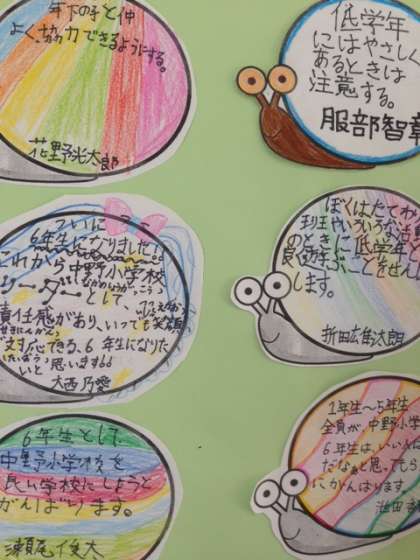 年下の子と仲
よく、協力できるようにする。
花野光太郎
低学年
にはやさしく
あるときは
注意する。
服部智章
ついに
6年生になりました!
これから中野小学校
なかのしょうがっこう
リーダーとして
責任感があり、いつでも笑顔
せきにんかん
えがお
で対応できる、6年生になりた
たいおう
いと思います!!
大西乃愛
ぼくはたてわ
班やいろいろな活動
のときに低学年と
良く遊ぶことをせん
します。
折田広隼次朗
6年生として、
中野小学校を
良い学校にしようと
がんばります。
瀬尾俊太
1年生〜5年生
全員が、中野小学
6年生は、いい人
だなぁと思ってもら
にがんばります
池田